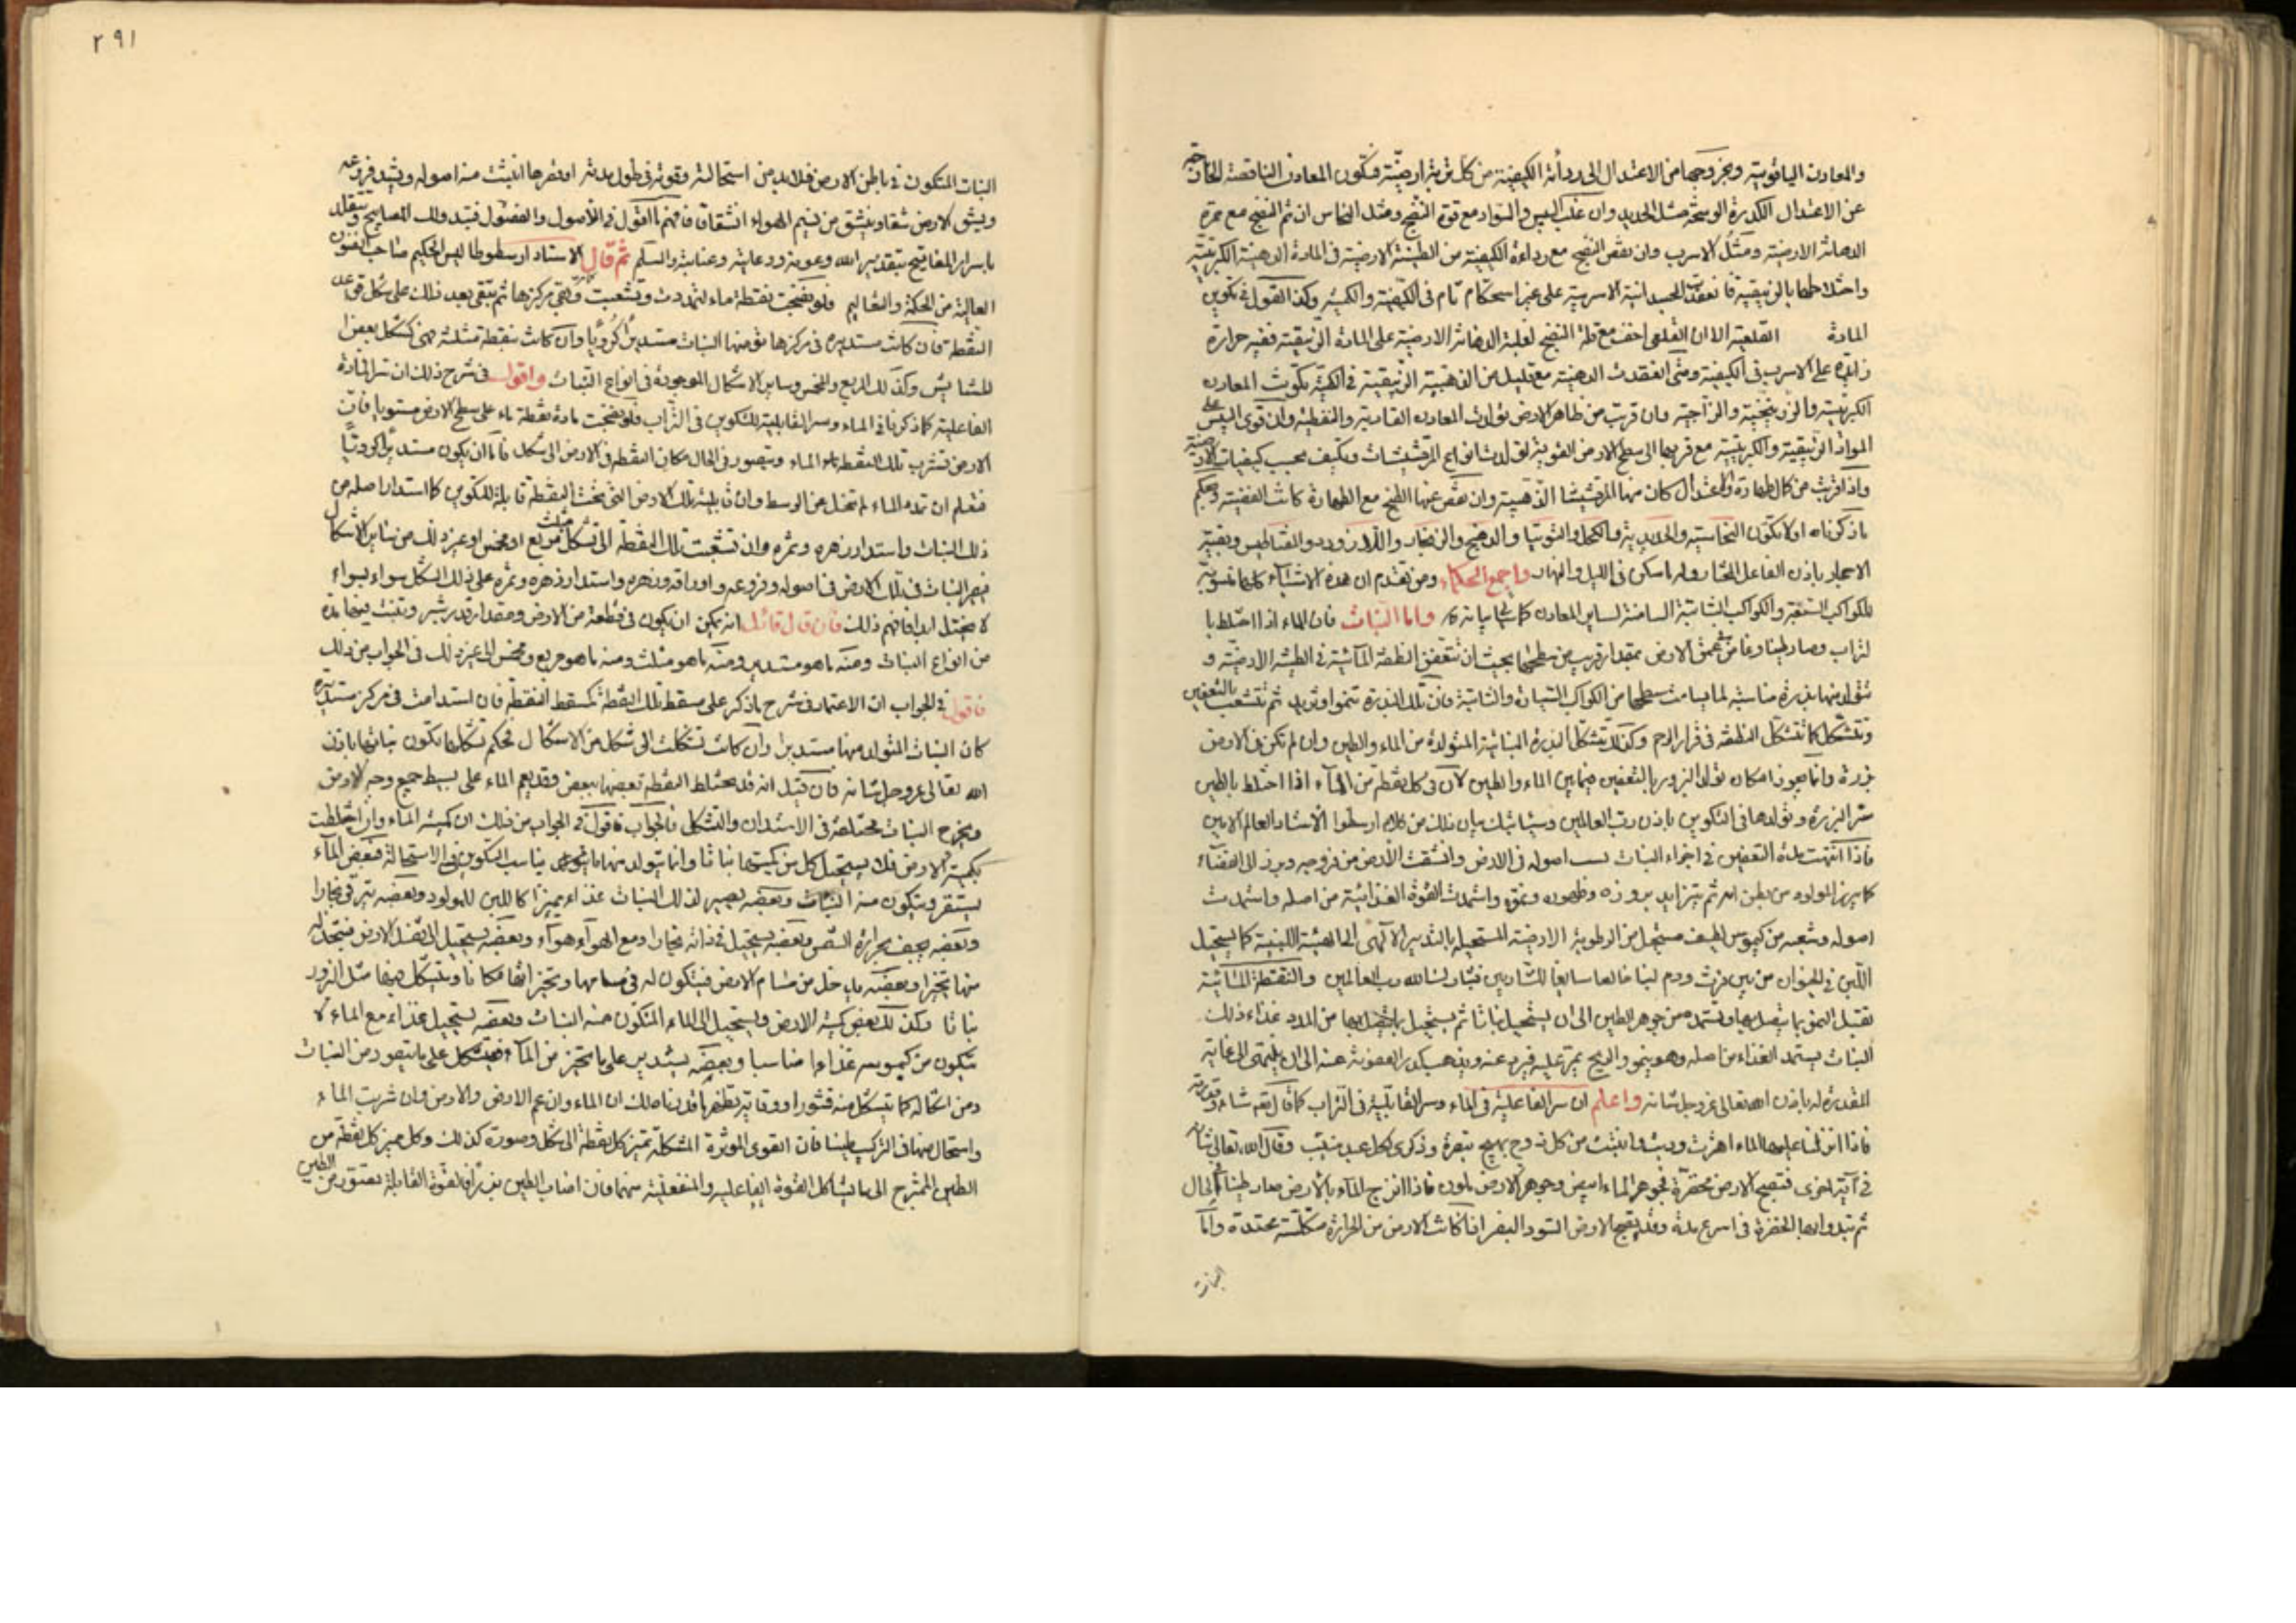 والمعادن الياقوتية وبخروجها من الاعتدال الى رداءة الكيفية من كل تربة ارضية فتكون المعادن الناقصة الخارجة
عن الاعتدال الكدرة الوسخة مثل الحديد وان غلب اليبس والسواد مع قوة النضج ومثل النحاس ان تم النضج مع حمرة
الدهانة الارضية ومثل الاسرب وان نقص النضج مع رداءة الكيفية من الطينة الارضية في المادة الدهنية الكبريتية
واختلاطها بالزيبقية فانعقدت الجسدانية الاسربية على غير استحكام تام في الكيفية والكمية وكذا القول في تكوين
المادة القلعية الا ان القلعي اخف مع قلة النضج لغلبة الدهانة الارضية على المادة الزيبقية ففيه حرارة
زايدة على الاسرب في الكيفية ومتى انعقدت الدهنية مع قليل من الذهبية الزيبقية في الكمية تكونت المعادن
الكبريتية والزرنيخية والزاجية وان قربت من ظاهر الارض تولدت المعادن القارية والنفطية وان قوى اليبس على
المواد الزيبقية والكبريتية مع قربها الى سطح الارض القوية تولدت انواع المرقشيثات وتكيف بحسب كيفيات الارضية
واذا قربت من كمال الطهارة والاعتدال كان منها المرقشيثا الذهبية وان نقص عنها الطبخ مع الطهارة كانت الفضية وبحكم
ما ذكرناه اولا تكون النحاسية والحديدية والكحل والتوتيا والدهنج والزنجار واللازورد والمغناطيس وبقية
الاحجار باذن الفاعل المختار وله ما سكن في الليل والنهار واجمع الحكماء ومن تقدم ان هذه الاشياء كلها منسوبة
للكواكب المتحيرة والكواكب الثابتة السامتة لساير المعادن كما سياتي بيانه واما النبات فان الماء اذا اختلط با
لتراب وصار طينا وغاص في عمق الارض بمقدار قريب من سطحها بحيث ان تتعفن النطفة المائية في الطينة الارضية و
تتولد منها بذرة مناسبة لما يسامت سطحها من الكواكب السيارة والثابتة فان تلك البذرة تنمو وتزيد ثم تتشعب بالتعفين
وتتشكل كما تتشكل النطفة في قرار الرحم وكذلك تتشكل البذرة النباتية المتولدة من الماء والطين وان لم تكن في الارض
بزرة وانما يجوز امكان تولد البزور بالتعفين فيما بين الماء والطين لان في كل نقطة من الماء اذا اختلط بالطين
سر البزرة وتولدها في التكوين باذن رب العالمين وسياتيك بيان ذلك من كلام ارسطو الاستاد العالم الامين
فاذا انتهت مدة التعفين في اجزاء النبات اصوله في الارض وانشقت الارض من فروعه وبرز الى الفضاء
كما يبرز المولود من بطن امه ثم يتزايد بروزه وظهوره ونموه واستمدت القوة الغذائية من اصله واستمدت
اصوله وشعبه من كيموس لطيف مستحيل من الرطوبة الارضية المستحيلة بالتدبير الالهي الى الهيئة اللبنية كما يستحيل
اللبن في الحيوان من بين فرث ودم لبنا خالصا سايغا للشاربين فتبارك الله رب العالمين والنقطة المائية
تقبل النمو بما يتصل بها وتستمده من جوهر الطين الى ان يستحيل نباتا ثم يستحيل ما يتصل بها من المدد غذاء ذلك
النبات يستمد الغذاء من اصله وهو ينمو والريح يمر عليه فيبرد عنه ويذهب كدر العفونة عنه الى ان ينتهى الى غايته
المقدرة له باذن الله تعالى عز وجل شانه واعلم ان سر الفاعلية في الماء وسر القابلية في التراب كما قال تعه شانه وقدرته
فاذا انزلنا عليها الماء اهتزت وربت وانبتت من كل زوج بهيج تبصرة وذكرى لكل عبد منيب وقال الله تعالى شانه
في آية اخرى فتصبح الارض مخضرة فجوهر الماء ابيض وجوهر الارض ملون فاذا امتزج الماء بالارض صار طينا في الحال
ثم تبدو ابدا الخضرة في اسرع مدة وقد يقبح الارض السود البصر اذا كانت الارض من الحرارة متكلسة محتدة واما
النبات
٢٩١
النبات المتكون في باطن الارض فلا بد من استحالته وقوته في طول مدته او قصرها انبثت منه اصوله وتبتد فروعه
ويشق الارض شقا وينشق من نسيم الهواء انشقاق فافهم القول في الاصول والفصول فتبدو لك المصابيح وتتقلد
باسرار المفاتيح بتقدير الله وعونه ورعايته وعنايته والسلم ثم قال الاستاد ارسطوطاليس الحكيم صاحب الفنون
العالية من الحكمة والتعاليم فلو نضجت نقطة ماء لتمددت وتشعبت وتبقى مركزها ثم يبقى بعد ذلك على شكل قوعد
النقطة فان كانت مستديرة في مركزها تو منها النبات مستديرا كرويا وان كانت نقطة مثلثة فهي كشكل بعض
للمتشابس وكذلك المربع والمخمس وساير الاشكال الموجودة في انواع النبات واقول في شرح ذلك ان سر المادة
الفاعلية كما ذكرنا في الماء وسر القابلية للتكوين في التراب فلو نضجت مادة نقطة ماء على سطح الارض مستويا فان
الارض تشرب تلك النقطة الماء ويتصور في الحال مكان النقطة في الارض الى شكل فاما ان يكون مستديرا كرويا
فنعلم ان تمدد الماء لم تمخل عن الوسط وان قابلية تلك الارض التي تحت النقطة قابلة للتكوين كما استدار اصله من
ذلك النبات واستدار زهره وثمره وان تشعبت تلك النقطة الى شكل مثلث مربع او مخمس او غير ذلك من ساير الاشكال
فيصير النبات في تلك الارض في اصوله وفروعه واوراقه وزهره واستدار زهره وثمره على ذلك الشكل سواء بسواء
لا يختل ابدا فافهم ذلك فان قال قائل انه يمكن ان يكون في قطعة من الارض ومقدار قدر شبر وتنبت فيها عدة
من انواع النبات ومنه ما هو مستدير ومنه ما هو مثلث ومنه ما هو مربع ومخمس الى غير ذلك في الجواب من ذلك
فاقول في الجواب ان الاعتماد في شرح ما ذكر على مسقط تلك النقطة كمسقط النقطة فان استدامت في مركز مستديرة
كان النبات المتولد منها مستديرا وان كانت تشكلت الى شكل من الاشكال فبحكم تشكلها تكون نباتها باذن
الله تعالى عز وجل شانه فان قيل انه قد تختلط النقطة بعضها ببعض وقد يعم الماء على بسيط جميع وجه الارض
ويخرج النبات مختلفة في الاستدارة والتشكل فالجواب فاقول في الجواب من ذلك ان كمية الماء وان اختلطت
بكمية الارض فلا يستحيل كل من كميتهما نباتا وانما يتولد منهما ما يناسب التكوين في الاستحالة فبعض الماء
يستقر ويتكون منه النبات وبعضه يصير لذلك النبات غذاء مميزا كاللبن للمولود وبعضه يترقى بخارا
وبعضه يجف بحرارة الشمس وبعضه يستحيل في ذاته بخارا ومع الهواء هواء وبعضه يستحيل الى ثفل الارض فيتخذ له
منها متحيزا وبعضه يدخل من مشام الارض فيتكون له في مسامها ومتحيزاتها مكانا ويتشكل فيها مثل البزور
نباتا وكذلك بعض كمية الارض ويستحيل الى الماء المتكون منه النبات وبعضه يستحيل غذاء مع الماء لا
يتكون من كيموسه غذاء مناسبا وبعضه يستدير على ما تحيز من الماء فيتشكل على ما يتصور من النبات
ومن اشكاله كما تتشكل منه قشورا ووقاية تظهر ما قلناه لك ان الماء وان عم الارض والارض وان شربت الماء
واستحال منهما في التركيب طينا فان القوى الموثرة المشكلة تميز كل نقطة الى شكل وصورة كذلك وكل مميز كل نقطة من
الطين الممتزج الى ما يشاكل القوة الفاعلية والمنفعلية منهما فان اصاب الطين بزرا فالقوة القابلة تعتور من الطين